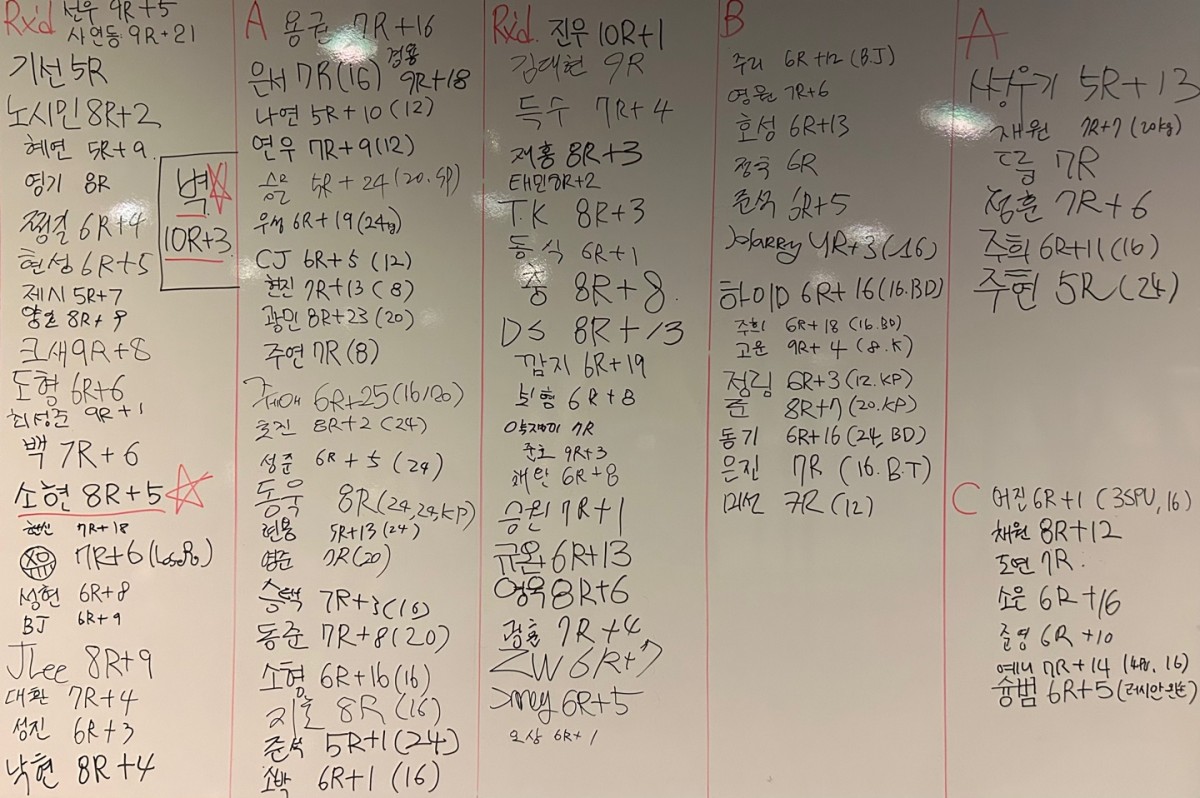 Rx'd 선우 9R+5
사연동 9R+21
기선 5R
노시민 8R+2
혜연 5R+9
영기 8R
찡길 6R+4
현성 6R+5
제시 5R+7
8R+9
크새 9R+8
도형 6R+6
최성준 9R+1
백 7R+6
소현 8R+5
현신 7R+18
7R+6
성현 6R+8
BJ 6R+9
JLee 8R+9
대환 7R+4
성진 6R+3
낙현 8R+4
벽
10R+3
A 용권 7R+16
경용
은서 7R(16) 9R+18
나연 5R+10(12)
연우 7R+9(12)
승은 5R+24(20.SP)
우성 6R+19(24kg)
CJ 6R+5(12)
현진 7R+13(8)
광민 8R+23(20)
주연 7R(8)
6R+25
효진 8R+2(24)
성준 6R+5(24)
동욱 8R(24,24,KP)
현용 5R+13(24)
영준 7R(20)
승택 7R+3(16)
동준 7R+8(20)
소형 6R+16(16)
지호 8R(16)
준석 5R+1(24)
소박 6R+1(16)
Rx'd. 진우 10R+1
김대현 9R
득수 7R+4
재홍 8R+3
태민 8R+2
T.K 8R+3
동식 6R+1
총 8R+8
DS 8R+13
깜지 6R+19
보형 6R+8
7R
준호 9R+3
채완 6R+8
승원 7R+1
규완 6R+13
영욱 8R+6
광훈 7R+4
ZW 6R+7
6R+5
오상 6R+1
B
주리 6R+12(BJ)
영원 7R+6
호성 6R+13
정욱 6R
준석 6R+5
Harry 4R+3(16)
하이D 6R+16(16.BD)
주희 6R+18(16.BD)
고운 9R+4(8.K)
정림 6R+3(12.KP)
준 8R+7(20.KP)
동기 6R+16(24,BD)
은진 7R(16.B.T)
미선 7R(12)
A
상우기 5R+13
재원 7R+7(20kg)
드릅 7R
정훈 7R+6
주희 6R+11(16)
주현 5R(24)
C 어진 6R+1(3SPU,16)
채원 8R+12
도연 7R.
소은 6R+16
준영 6R+10
예니 7R+14
승범 6R+5